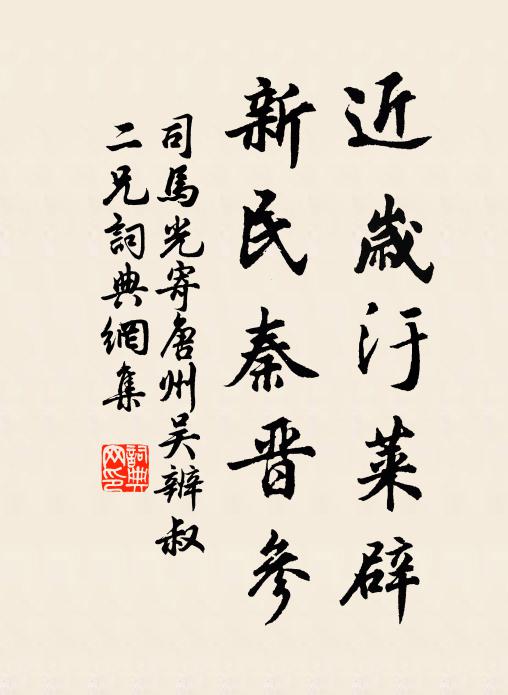 近歲汙萊辟
新民秦晉參
司馬光寄唐州吴辨叔
二兄詞典網集
詞典
网印